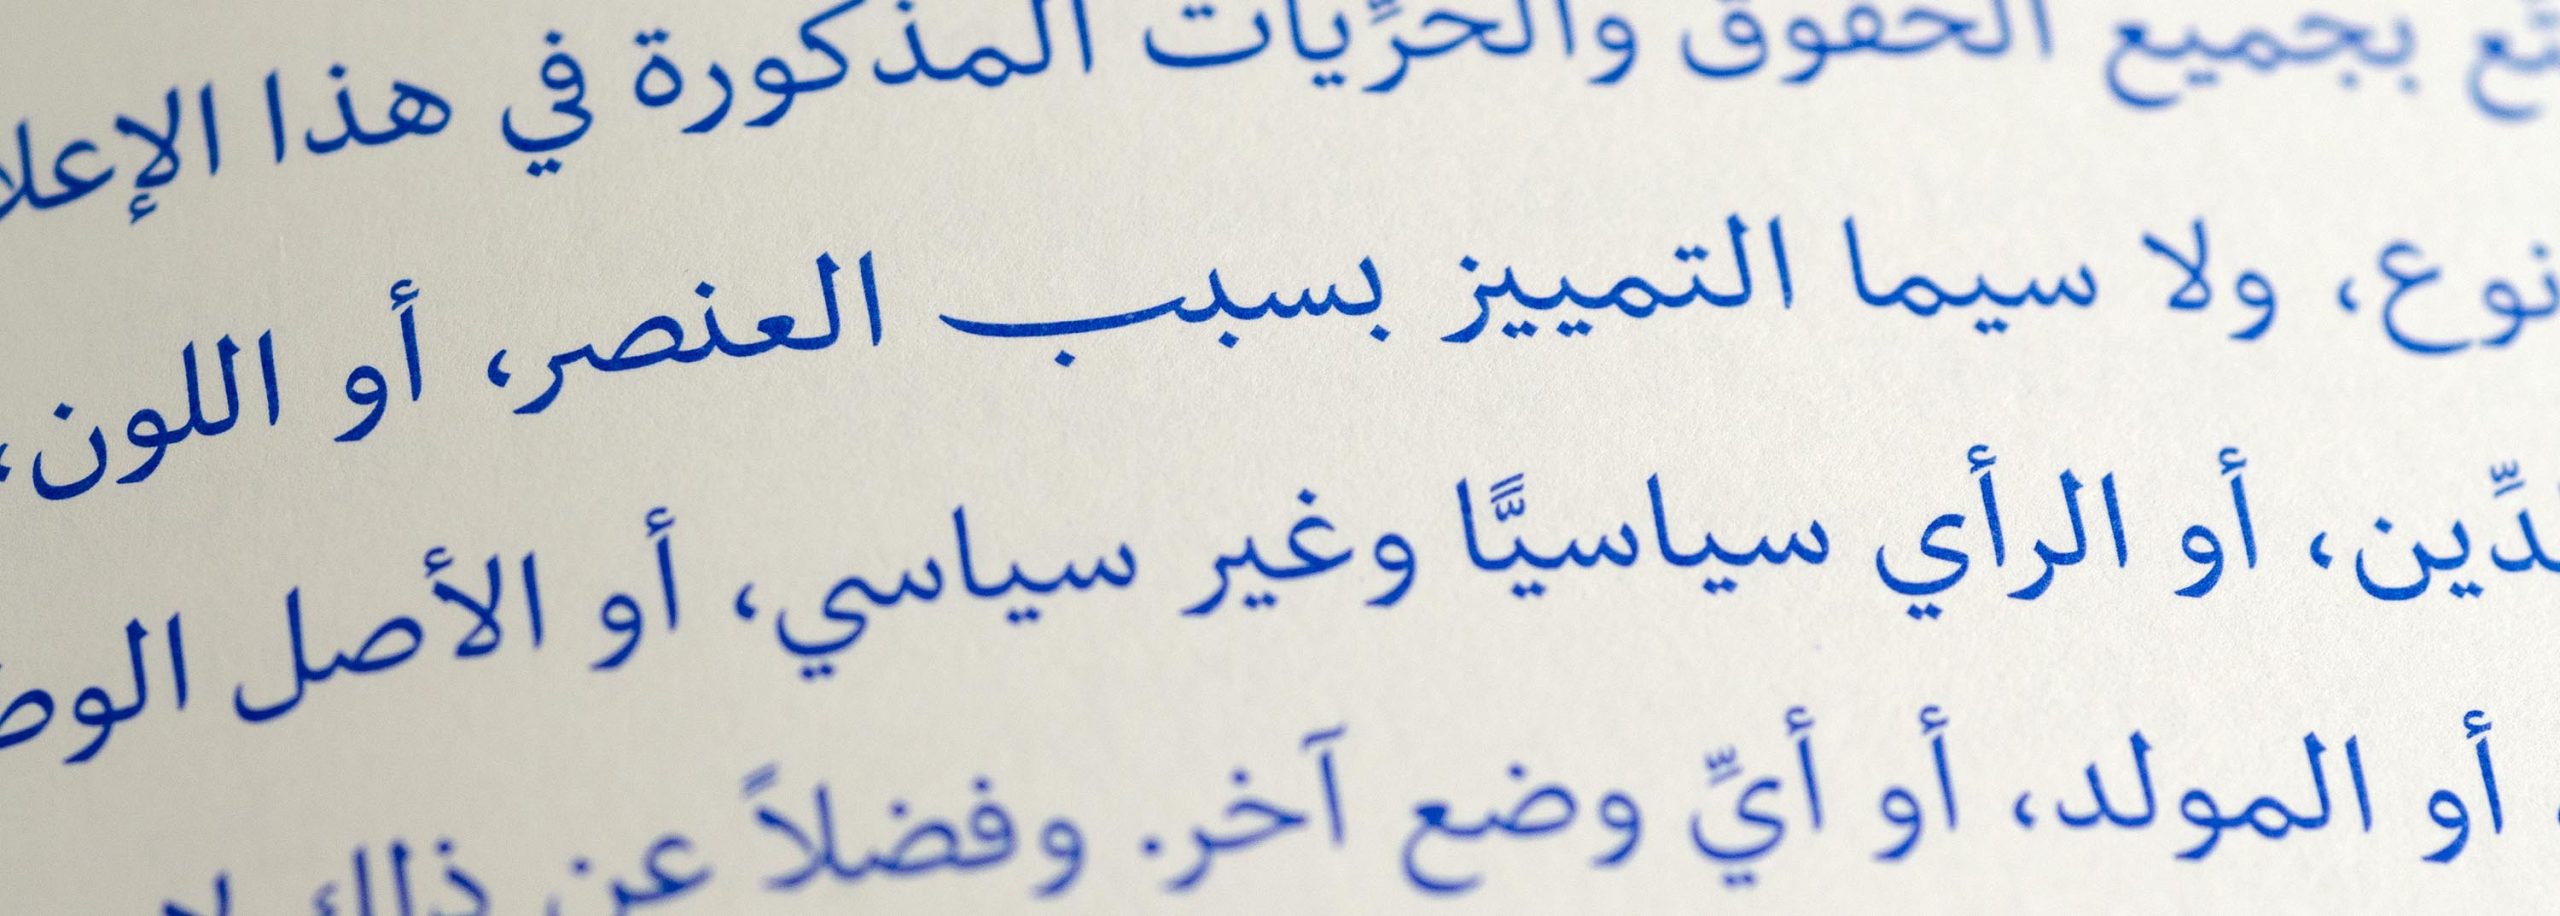 بجميع الحقوق والحرِّيات المذكورة في هذا
نوع، ولا سيما التمييز بسبب العنصر، أو اللون،
أو الرأي سياسيًّا وغير سياسي، أو الأصل
أو المولد، أو أيِّ وضع آخر. وفضلاً عن ذلك